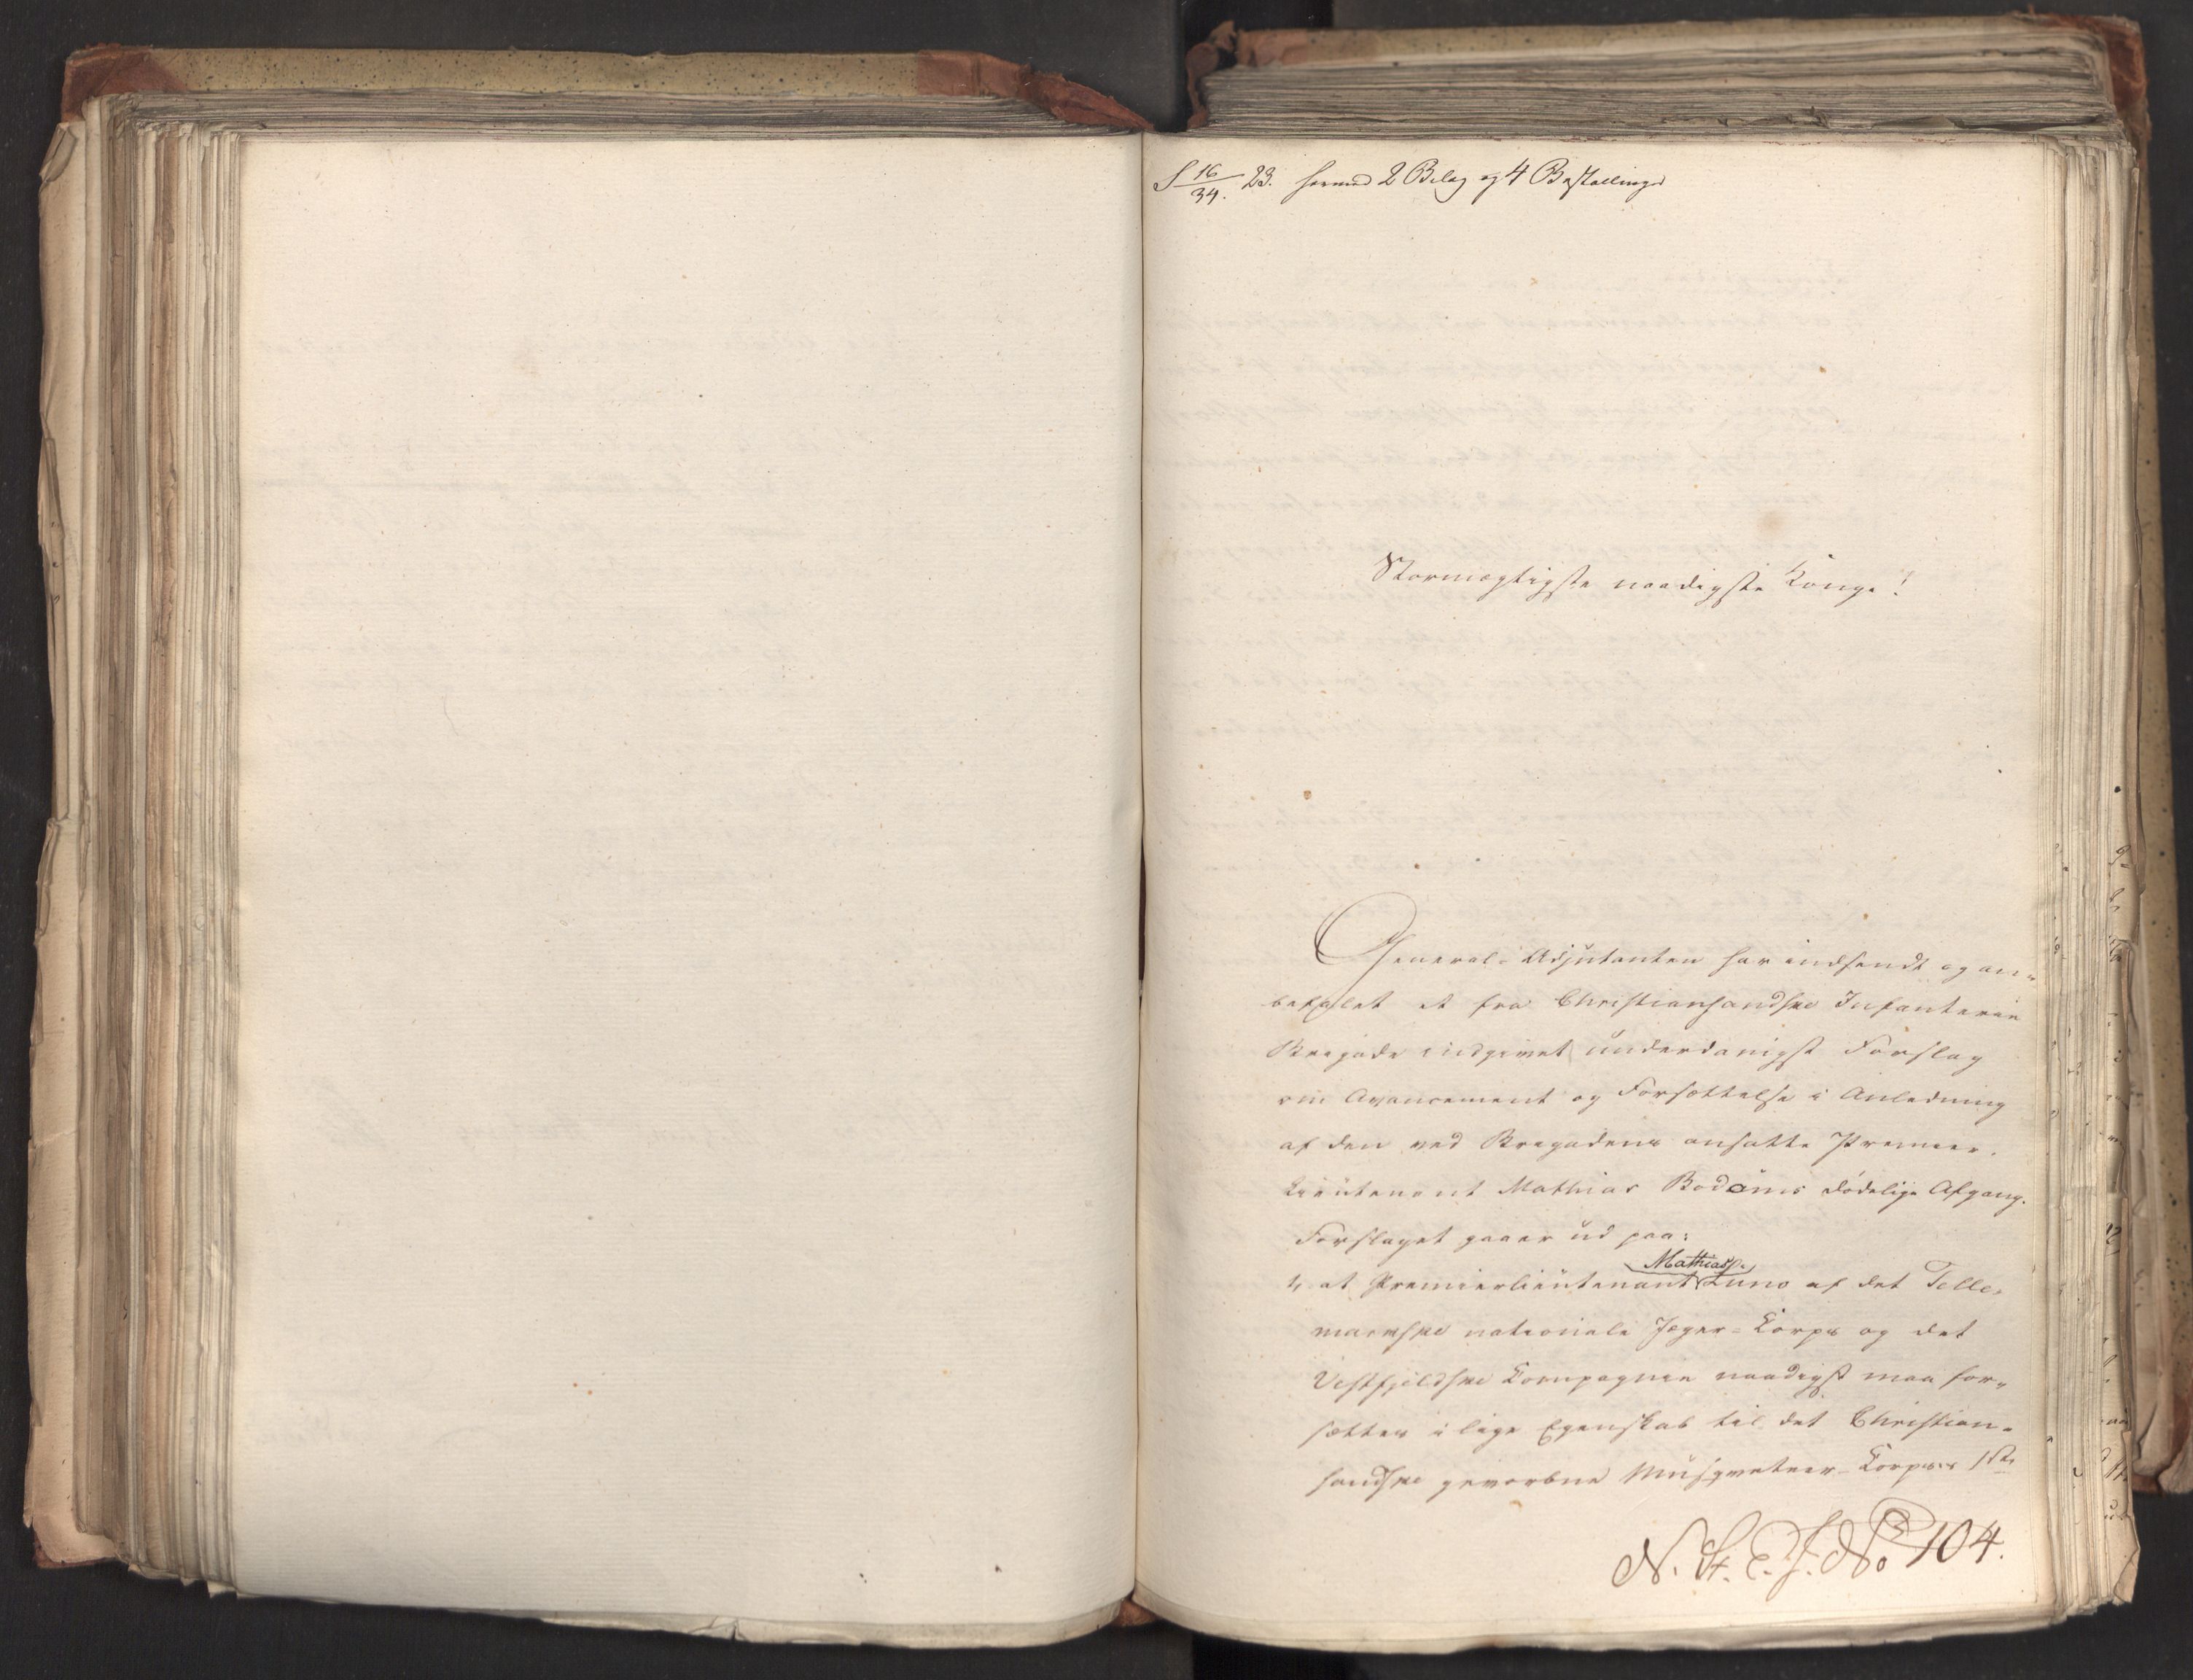 S 16/34. 23. hermed 2 Bilag og 4 Bestallinger
Stormægtigste naadigste Konge!
General-Adjutanten har indsendt og an-
befalet et fra Christiansandske Infanterie
Brigade indgivet underdanigst Forslag
om Avancement og Forsættelse i Anledning
af den ved Brigadens ansatte Premier-
Lieutenant Mathias Bodoms dödelige Afgang.
Forslaget gaaer ud paa:
Mathias
1, at Premierlieutenant Luno af det Telle-
markske nationale Jæger-Korps og det
Vestfjeldske Kompagnie naadigst maa for-
sættes i lige Egenskab til det Christian-
sandske gevorbne Musqueteer-Korpses 1ste
N. St. E. J. No 104.